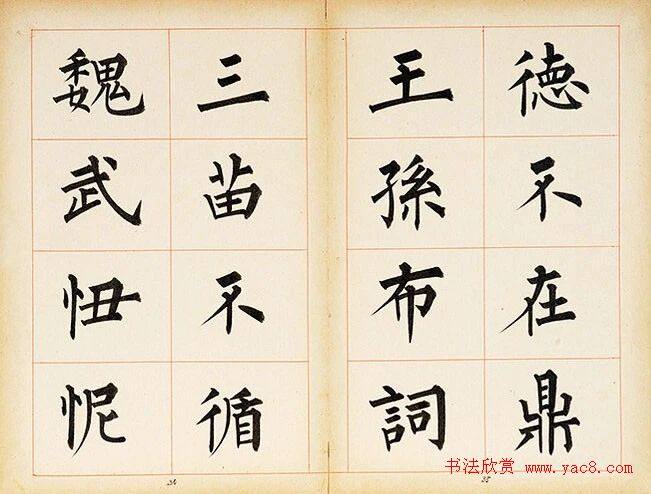 德不在鼎
王孫布詞
三苗不循
魏武忸怩
书法欣赏 www.yac8.com